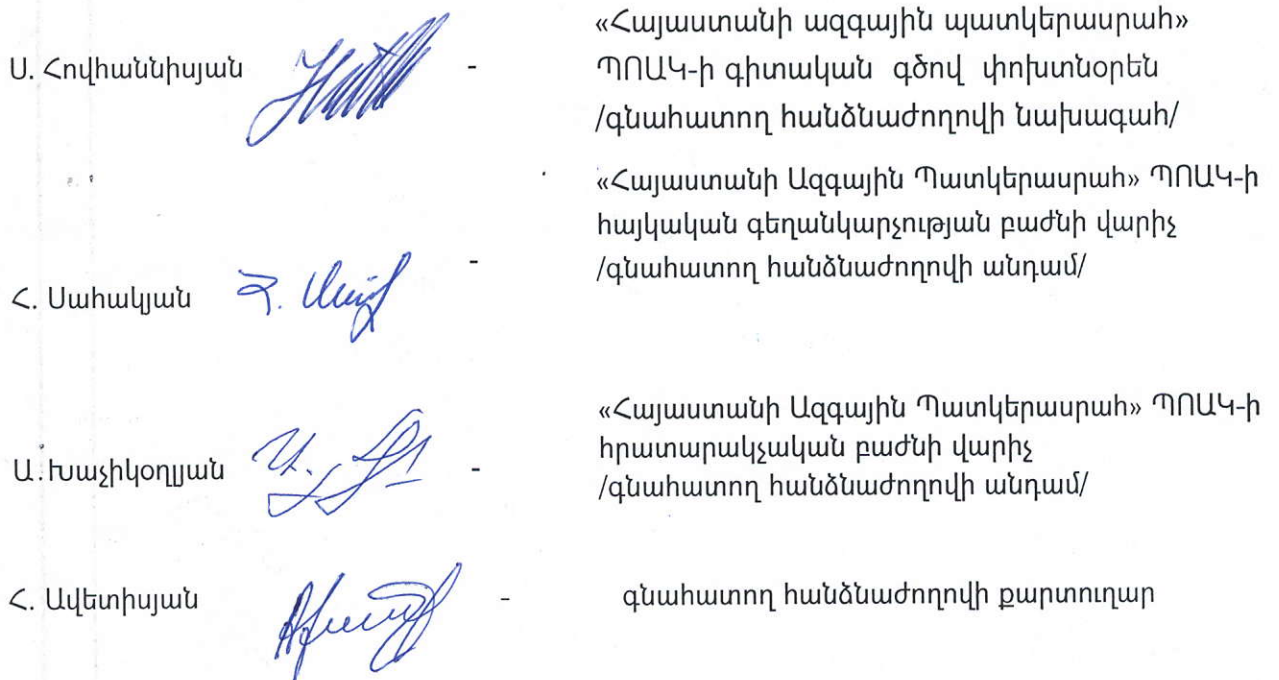 «Հայաստանի ազգային պատկերասրահ»
Ս. Հովհաննիսյան - ՊՈԱԿ-ի գիտական գծով փոխտնօրեն
/գնահատող հանձնաժողովի նախագահ/
«Հայաստանի Ազգային Պատկերասրահ» ՊՈԱԿ-ի
հայկական գեղանկարչության բաժնի վարիչ
- /գնահատող հանձնաժողովի անդամ/
Հ. Սահակյան
«Հայաստանի Ազգային Պատկերասրահ» ՊՈԱԿ-ի
հրատարակչական բաժնի վարիչ
Ա. Խաչիկօղլյան - /գնահատող հանձնաժողովի անդամ/
Հ. Ավետիսյան - գնահատող հանձնաժողովի քարտուղար